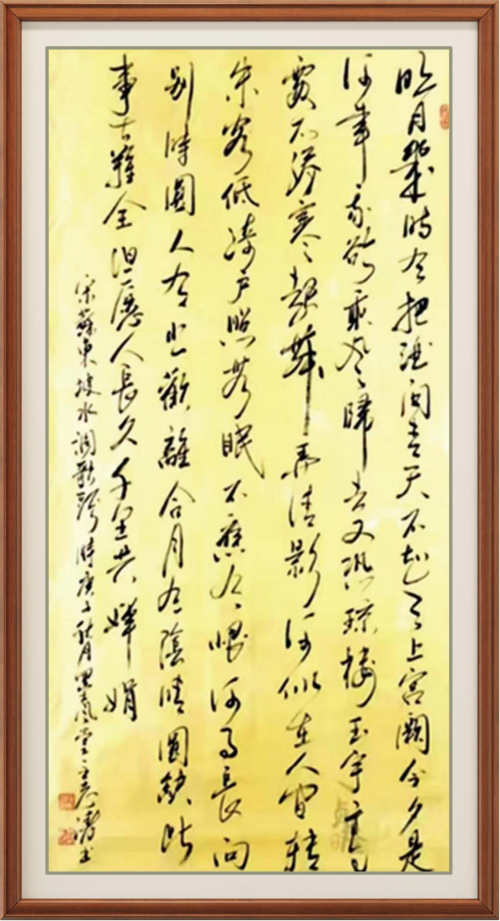 明月幾時有把酒問青天不知天上宮闕今夕是
何年我欲乘風歸去又恐琼樓玉宇高
處不勝寒起舞弄清影何似在人間轉
朱閣低綺戶照無眠不應有恨何事長向
別時圓人有悲歡離合月有陰晴圓缺此
事古難全但願人長久千里共嬋娟
宋蘇東坡水調歌頭時庚子秋月堂主書